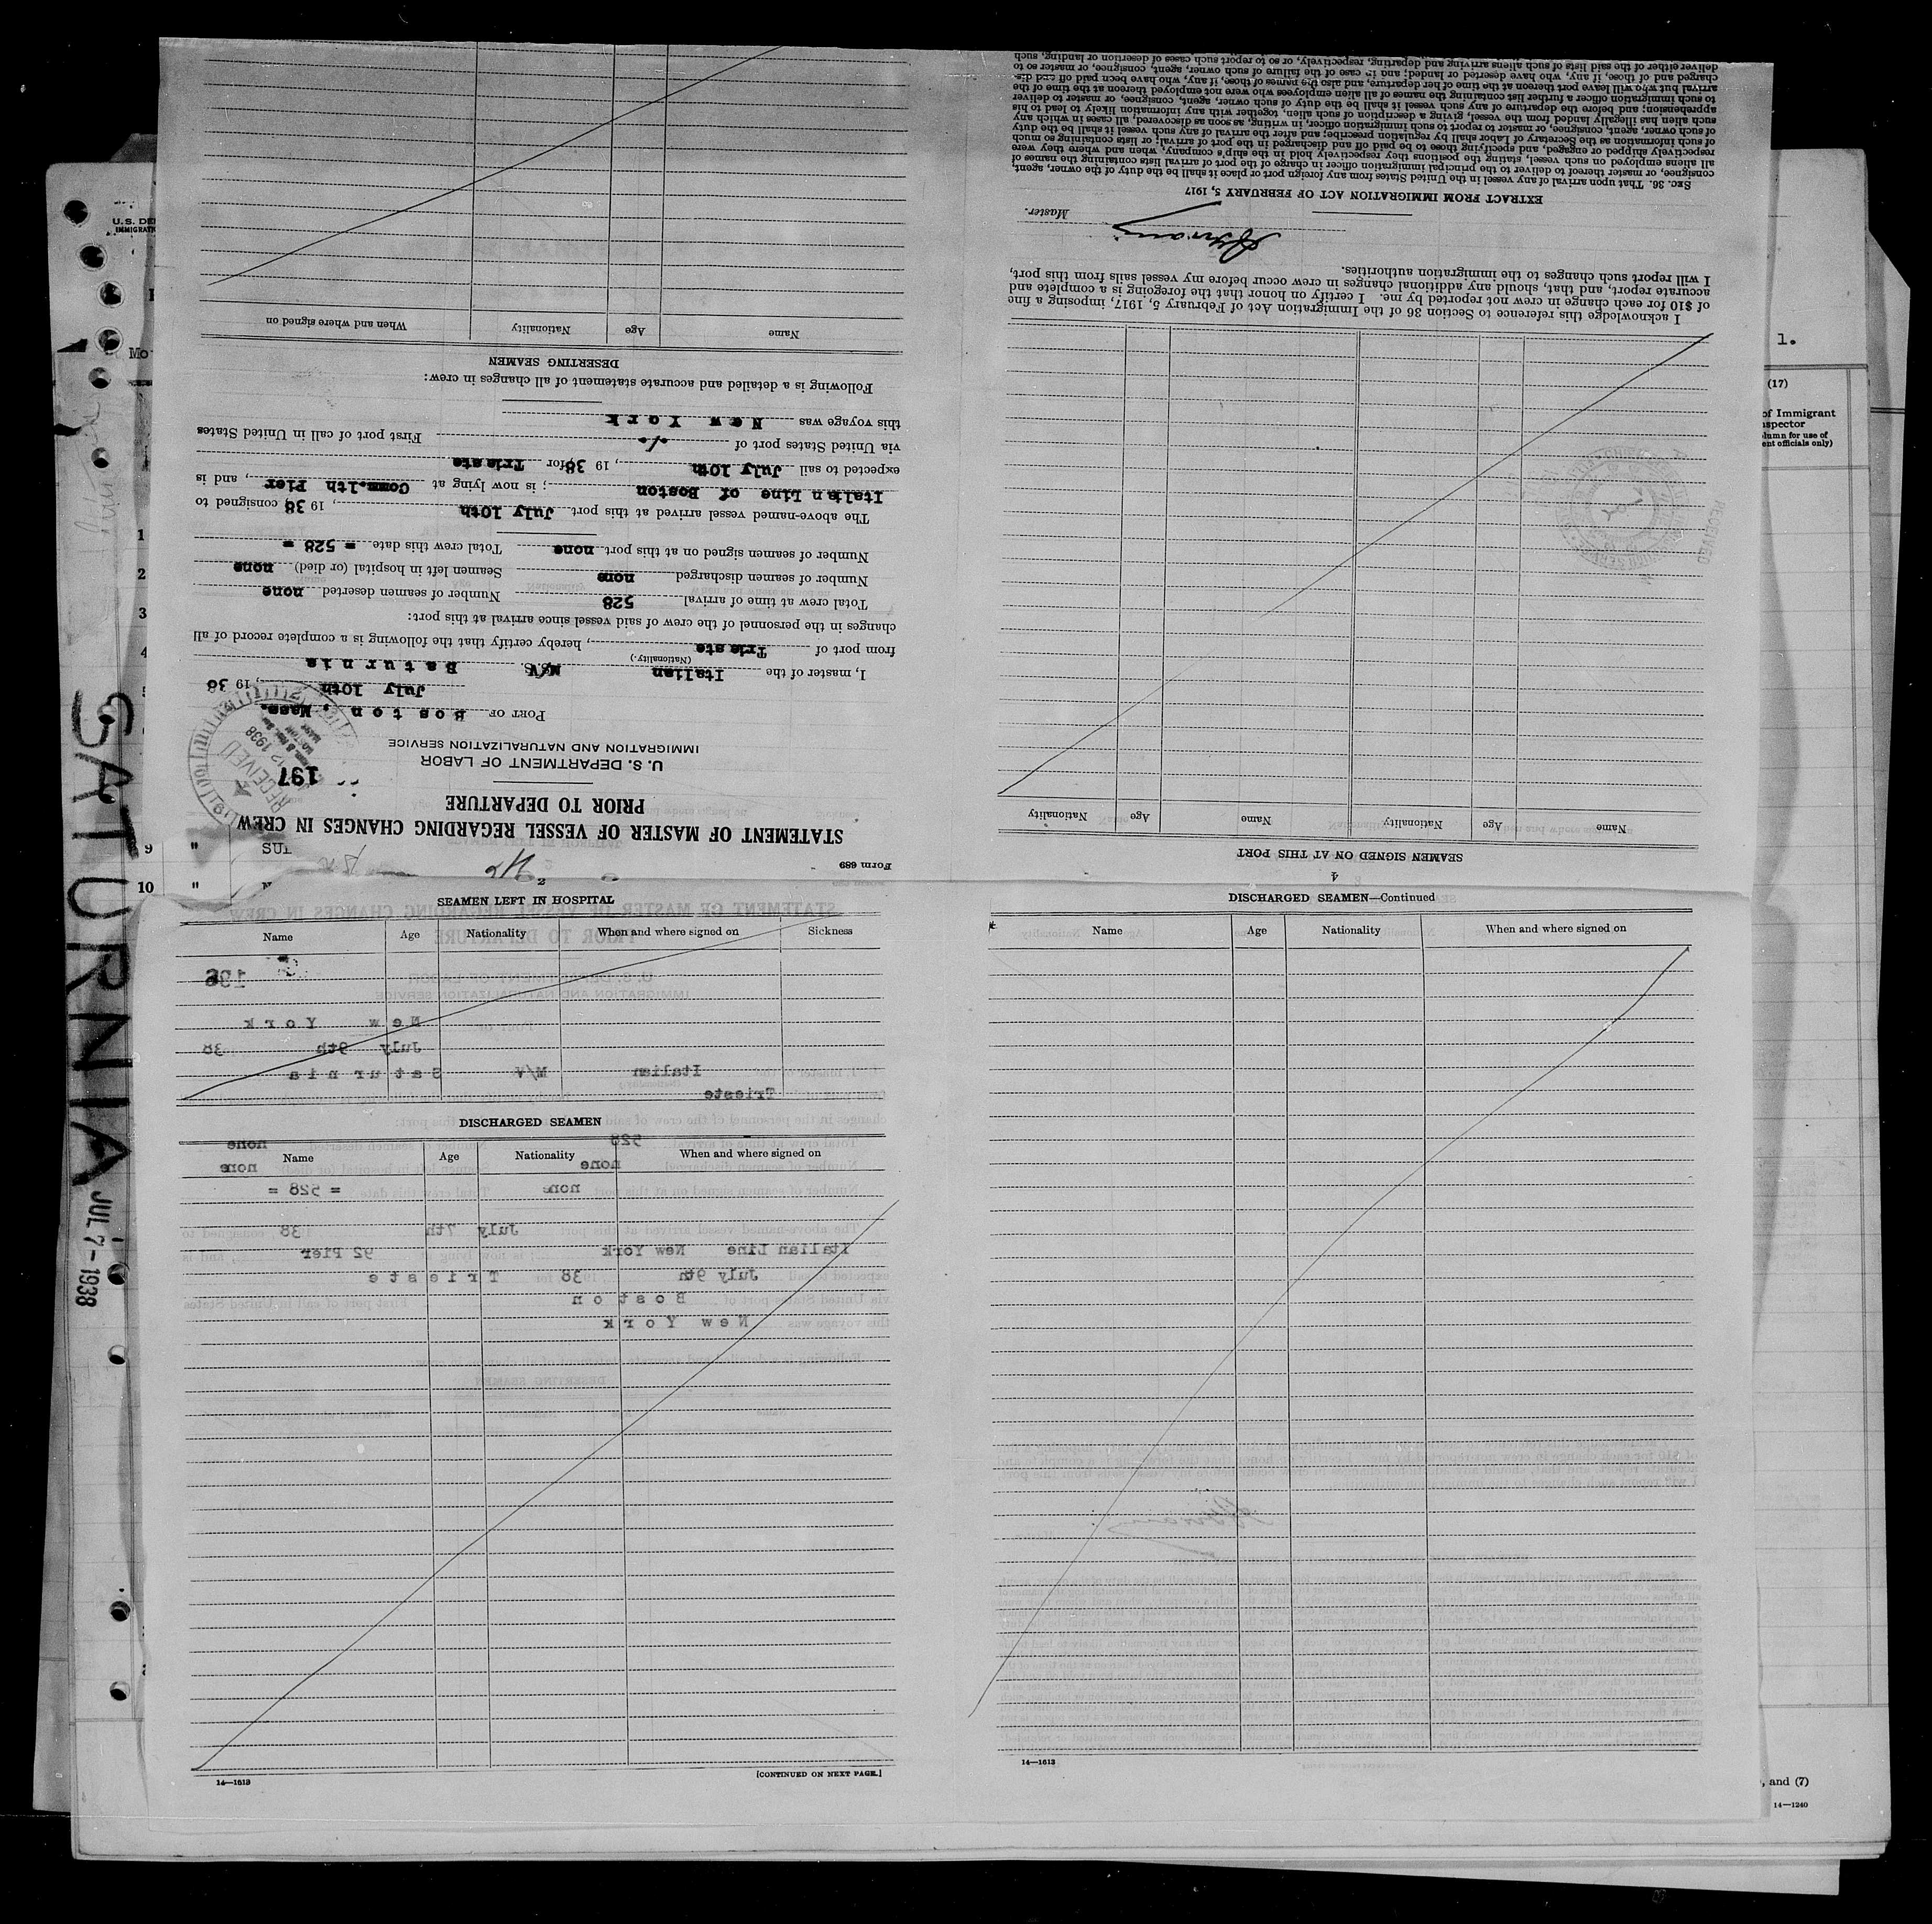 Form 689
STATEMENT OF MASTER OF VESSEL REGARDING CHANGES IN CREW
PRIOR TO DEPARTURE
U. S. DEPARTMENT OF LABOR
IMMIGRATION AND NATURALIZATION SERVICE
197
RECEIVED
12 1938
PORT OF Boston, Mass.
July 10th, 1938
I, master of the Italian M/V Saturnia
(Nationality.)
from port of Trieste, hereby certify that the following is a complete record of all
changes in the personnel of the crew of said vessel since arrival at this port:
Total crew at time of arrival 528 Number of seamen deserted none
Number of seamen discharged none Seamen left in hospital (or died) none
Number of seamen signed on at this port none Total crew this date = 528 =
The above-named vessel arrived at this port July 10th, 1938 consigned to
Italian Line of Boston; is now lying at Commwlth Pier, and is
expected to sail July 10th, 1938, for Trieste
via United States port of ./. First port of call in United States
this voyage was New York
Following is a detailed and accurate statement of all changes in crew:
DESERTING SEAMEN
Name Age Nationality When and where signed on
4
SEAMEN SIGNED ON AT THIS PORT
Name Age Nationality Name Age Nationality
I acknowledge this reference to Section 36 of the Immigration Act of February 5, 1917, imposing a fine
of $10 for each change in crew not reported by me. I certify on honor that the foregoing is a complete and
accurate report, and that, should any additional changes in crew occur before my vessel sails from this port,
I will report such changes to the immigration authorities.
Master.
EXTRACT FROM IMMIGRATION ACT OF FEBRUARY 5, 1917
SEC. 36. That upon arrival of any vessel in the United States from any foreign port or place it shall be the duty of the owner, agent,
consignee, or master thereof to deliver to the principal immigration officer in charge of the port of arrival lists containing the names of
all aliens employed on such vessel, stating the positions they respectively hold in the ship's company, when and where they were
respectively shipped or engaged, and specifying those to be paid off and discharged in the port of arrival; or lists containing so much
of such information as the Secretary of Labor shall by regulation prescribe; and after the arrival of any such vessel it shall be the duty
of such owner, agent, consignee, or master to report to such immigration officer, in writing, as soon as discovered, all cases in which any
such alien has illegally landed from the vessel, giving a description of such alien, together with any information likely to lead to his
apprehension; and before the departure of any such vessel it shall be the duty of such owner, agent, consignee, or master to deliver
to such immigration officer a further list containing the names of all alien employees who were not employed thereon at the time of the
arrival but who will leave port thereon at the time of her departure, and also the names of those, if any, who have been paid off and dis-
charged and of those, if any, who have deserted or landed; and in case of the failure of such owner, agent, consignee, or master so to
deliver either of the said lists of such aliens arriving and departing, respectively, or so to report such cases of desertion or landing, such
2
SEAMEN LEFT IN HOSPITAL
Name Age Nationality When and where signed on Sickness
196
New York
July 9th 38
Italian M/V Saturnia
Trieste
DISCHARGED SEAMEN
Name Age Nationality When and where signed on
528 none
none none
none = 528 =
July 7th 38
Italian Line New York 92 Pier
July 9th 38 Trieste
Boston
New York
14—1613
[CONTINUED ON NEXT PAGE.]
DISCHARGED SEAMEN—Continued
Name Age Nationality When and where signed on
14—1613
SATURNIA JUL 7-1938
U.S. DE
IMMIGRAT
Mo
1
2
3
4
5
9 "
10 "
1.
(17)
of Immigrant
nspector
lumn for use of
ent officials only)
, and (7)
14—1240
RECEIVED